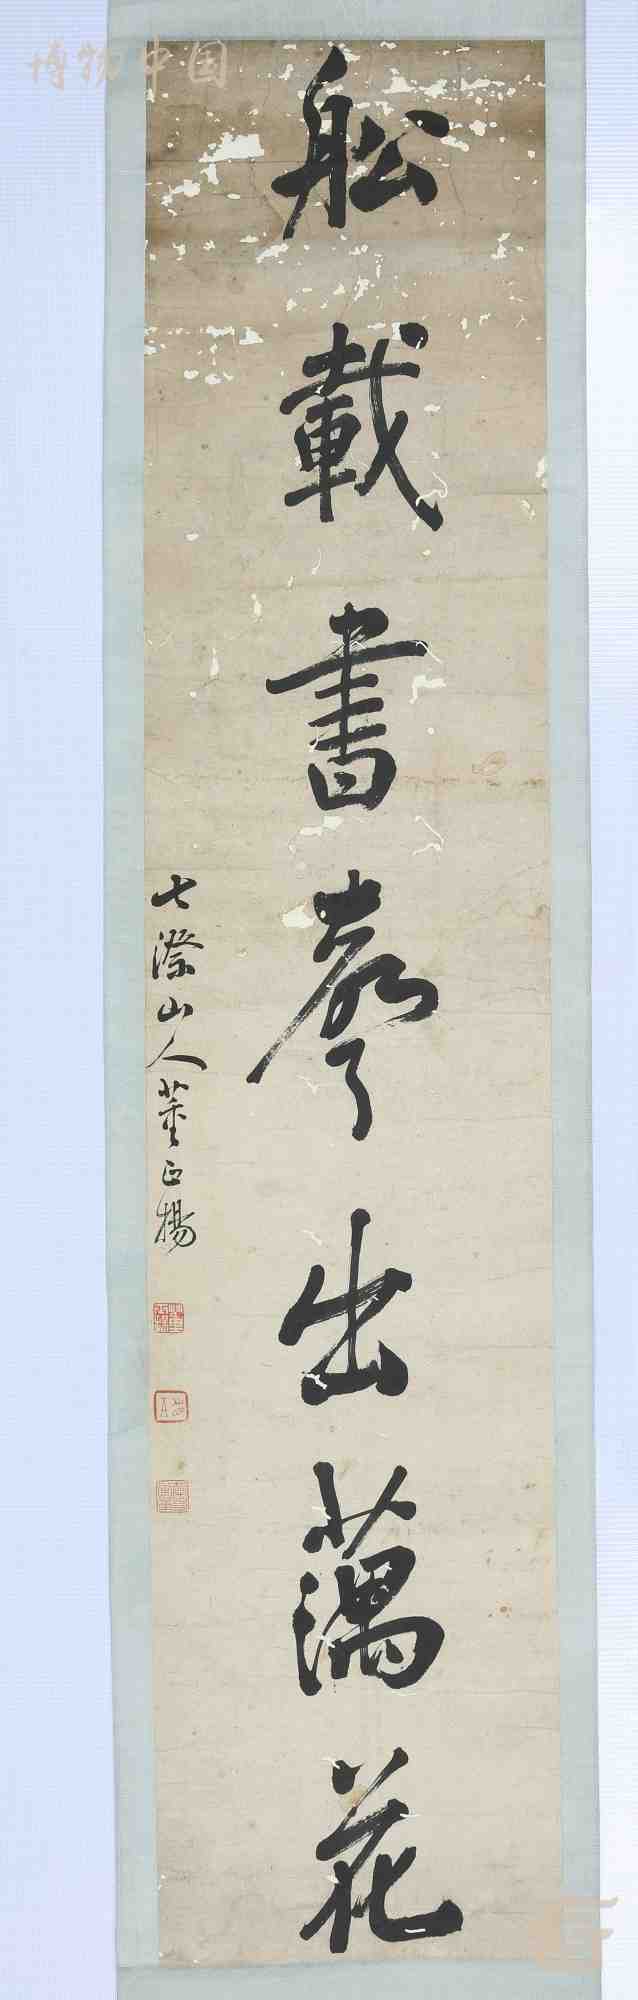 博物中国
舩載書聲出蕅花
七漈山人董正揚